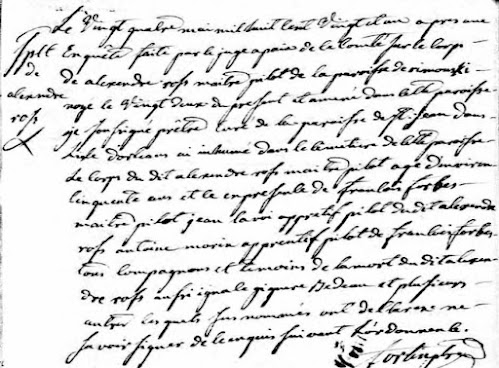 Le vingt quatre mai mil huit cent vingt et un apres une
Splt
de
alexandre
ross
Enquête faite par le juge apaix de la Comté sur le corps
de alexandre ross maitre pilot de la paroisse de rimouski
noyé le vingt deux du present et amené dans la dte paroisse
je soussigné prêtre curé de la paroisse de St. jean dans
L'isle d'orleans ai inhumé dans le cimetiere de la dte paroisse
Le corps du dit alexandre ross maitre pilot agé d'environ
cinquante ans et le en presence de francois forbes
maitre pilot jean lavoi apprentif pilot du dit alexandre
ross antoine morin apprentif pilot de francois forbes
tous compagnons et temoins de la mort du dit alexan
dre ross aussi ignace giguere Bedeau et plusieurs
autres lesquels sus nommés ont declaré ne
savoir signer de ce enquis suivant l'ordonnance.